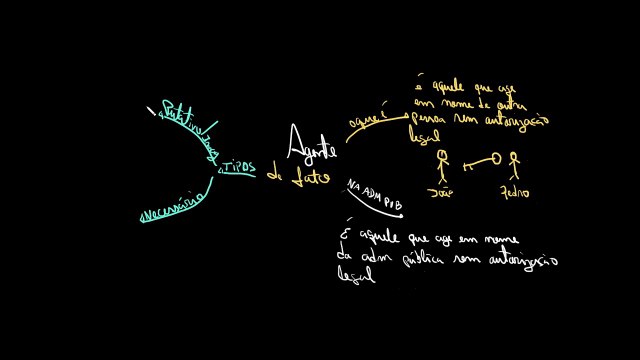 Agente
de fato
o que é
é aquele que age
em nome de outra
pessoa sem autorização
legal
João
Pedro
NA ADM PUB
É aquele que age em nome
da adm pública sem autorização
legal
TIPOS
Putativo/
Necessário